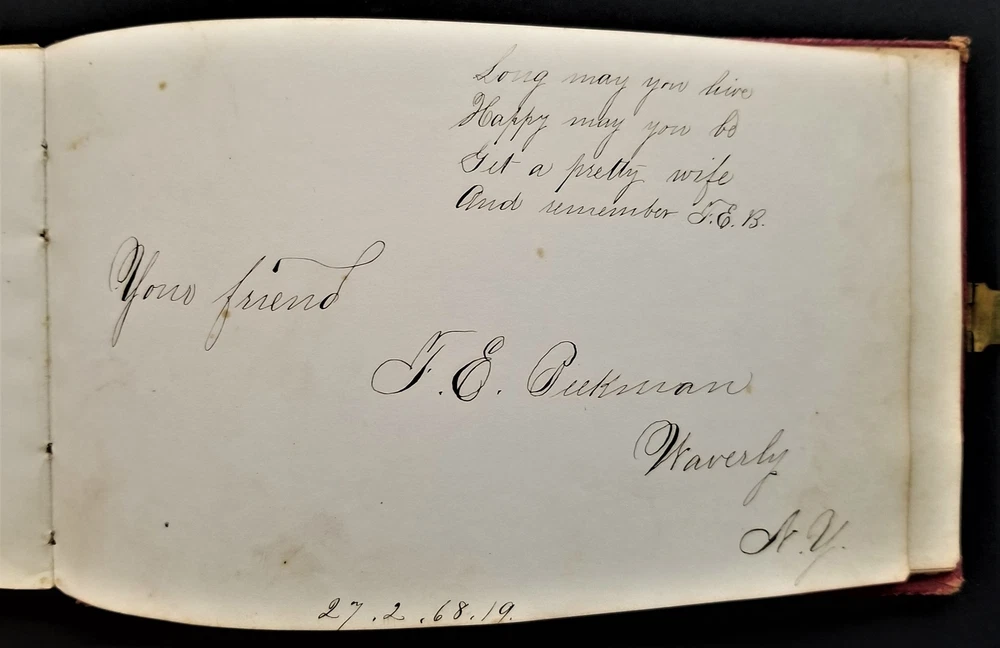 Long may you live
Happy may you be
Get a pretty wife
And remember F.E.B.
Your friend
F.E. Beekman
Waverly
N.Y.
27.2.68.19.